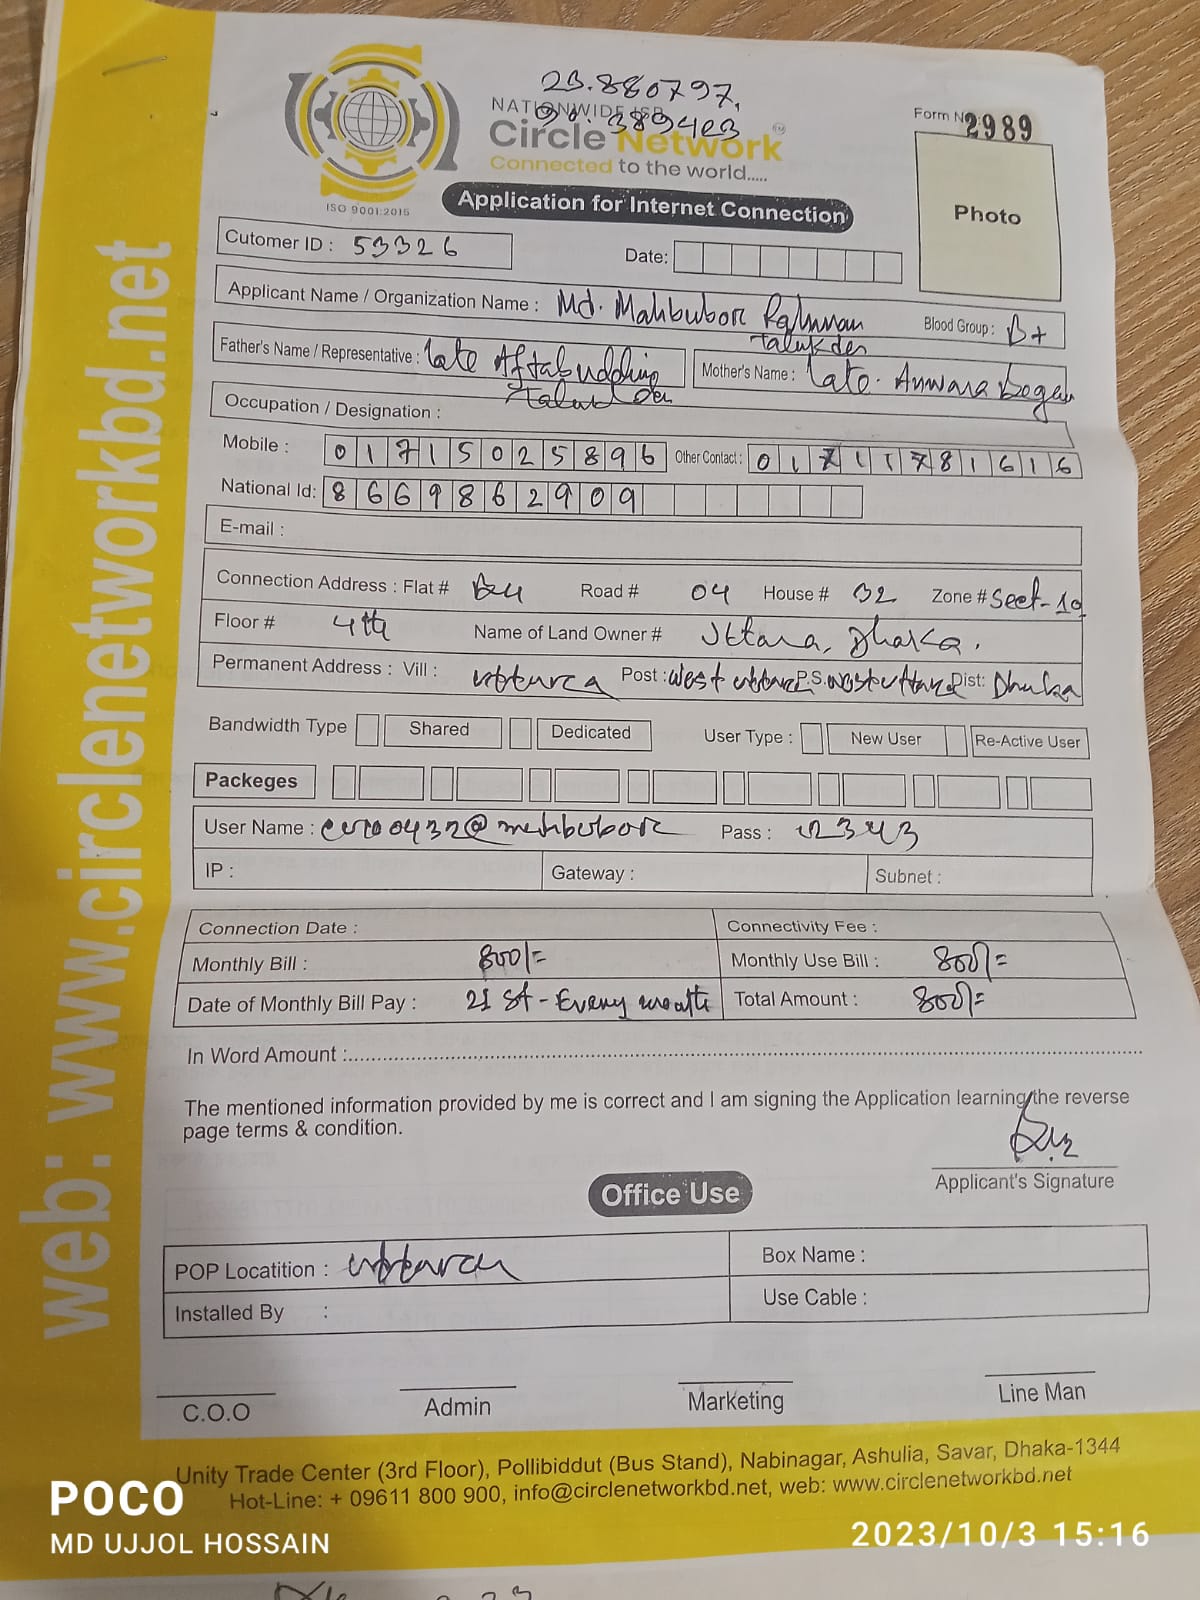 23.880797,
90.389423
NATIONWIDE ISP
Circle Network
Connected to the world.....
ISO 9001:2015
Form No 2989
Photo
Application for Internet Connection
Cutomer ID : 53326
Date:
Applicant Name / Organization Name : Md. Mahbubor Rahman Talukder
Blood Group : B+
Father's Name / Representative : Late Aftabudding Talukder
Mother's Name : Late. Anwara Begam
Occupation / Designation :
Mobile : 01715025896 Other Contact : 01711781616
National Id: 8669862909
E-mail :
Connection Address : Flat # B4 Road # 04 House # 32 Zone # Sect-10
Floor # 4th Name of Land Owner # Uttara, Dhaka.
Permanent Address : Vill : uttara Post : West uttara P.S. west uttara Dist: Dhaka
Bandwidth Type Shared Dedicated User Type : New User Re-Active User
Packeges
User Name : 0432@mehbubor Pass : 12343
IP : Gateway : Subnet :
Connection Date : Connectivity Fee :
Monthly Bill : 800/= Monthly Use Bill : 800/=
Date of Monthly Bill Pay : 21 st - Every month Total Amount : 800/=
In Word Amount :
The mentioned information provided by me is correct and I am signing the Application learning the reverse
page terms & condition.
Applicant's Signature
Office Use
POP Locatition : uttara Box Name :
Installed By : Use Cable :
C.O.O Admin Marketing Line Man
Unity Trade Center (3rd Floor), Pollibiddut (Bus Stand), Nabinagar, Ashulia, Savar, Dhaka-1344
Hot-Line: + 09611 800 900, info@circlenetworkbd.net, web: www.circlenetworkbd.net
web: www.circlenetworkbd.net
POCO
MD UJJOL HOSSAIN
2023/10/3 15:16